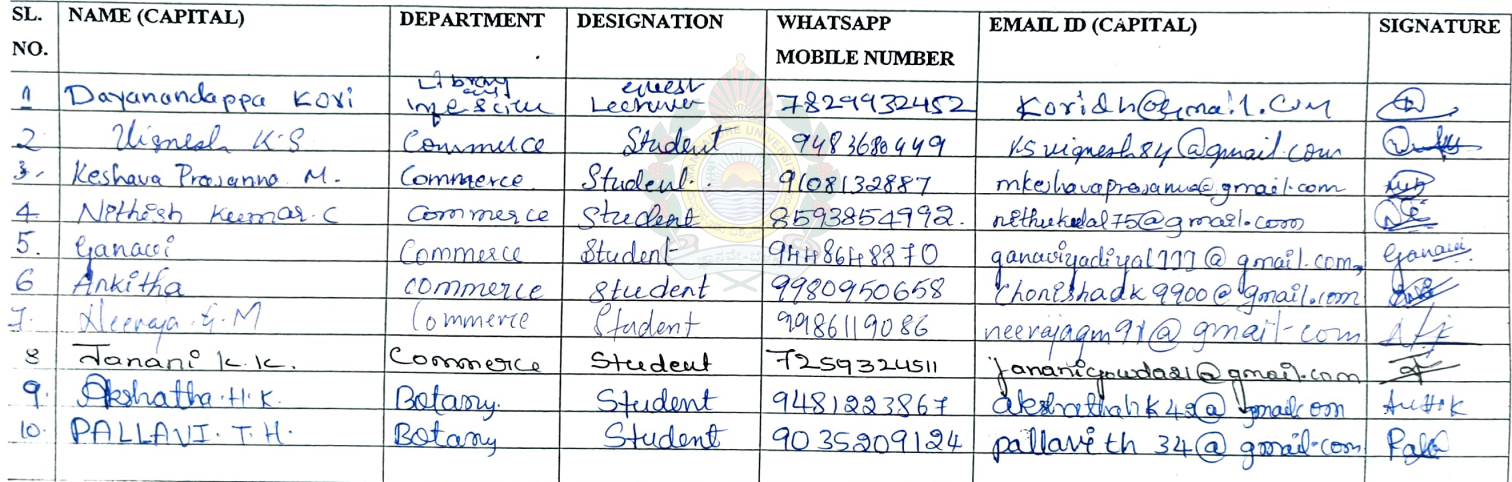 SL. NO. NAME (CAPITAL) DEPARTMENT DESIGNATION WHATSAPP MOBILE NUMBER EMAIL ID (CAPITAL) SIGNATURE
1 Dayanandappa Kori Library and Inf Science Guest Lecturer 7829932452 koridh@gmail.com
2 Vignesh K.S Commerce Student 9483680449 ksvignesh84@gmail.com
3. Keshava Prasanna M. Commerce Student 9108132887 mkeshavaprasanna@gmail.com
4 Nithish Kumar.C Commerce Student 8593854992. nithukudal75@gmail.com
5. Ganavi Commerce Student 9448648870 ganaviyadiyal777@gmail.com, Ganavi
6 Ankitha Commerce Student 9980950658 chonishadk9900@gmail.com
7. Neeraja.G.M Commerce Student 9986119086 neerajagm91@gmail.com
8 Janani K.K. Commerce Student 7259324511 jananigowda21@gmail.com
9. Akshatha.H.K. Botany. Student 9481223867 akshathahk42@gmail.com
10. PALLAVI.T.H. Botany Student 9035209124 pallavith34@gmail.com